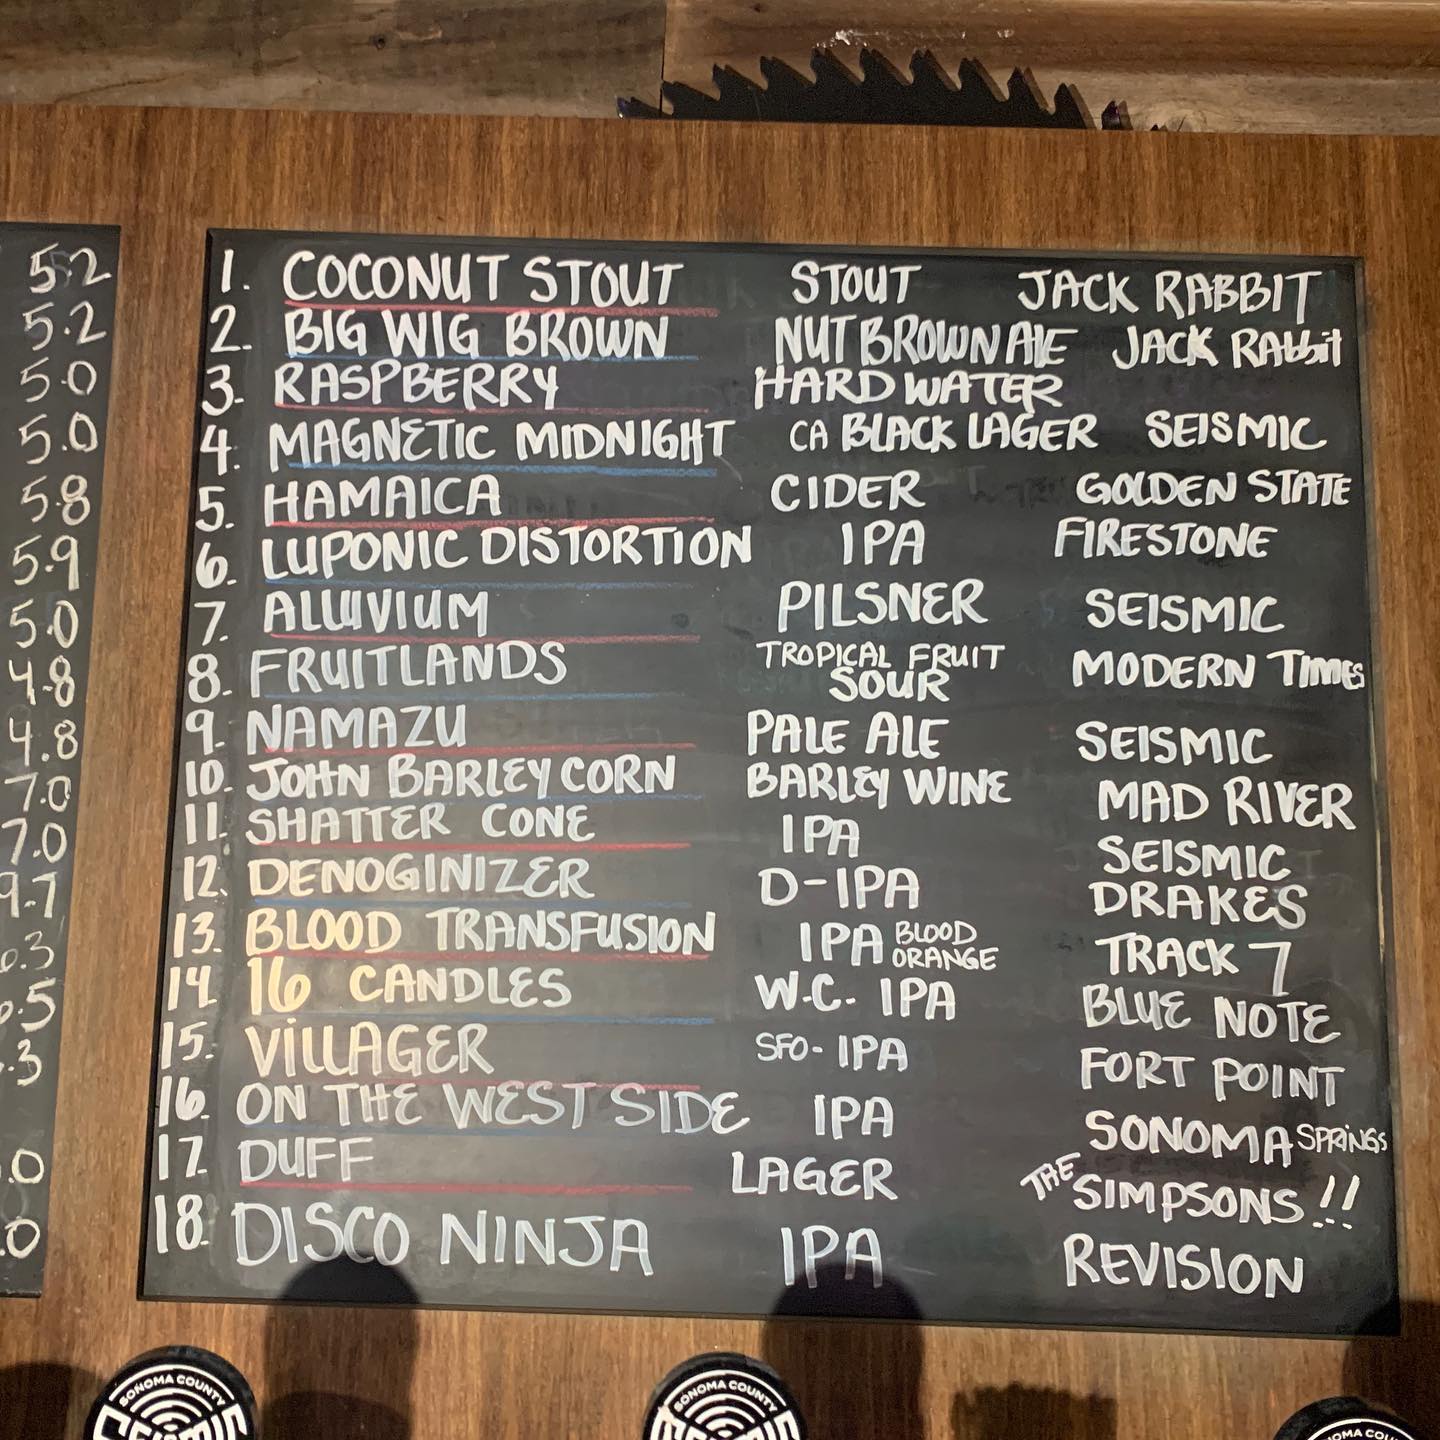 5.2
5.2
5.0
5.0
5.8
5.9
5.0
4.8
4.8
7.0
7.0
9.7
.3
.5
.3
.0
.0
1. COCONUT STOUT STOUT JACK RABBIT
2. BIG WIG BROWN NUT BROWN AlE JACK RAbbit
3. RASPBERRY HARD WATER
4. MAGNETIC MIDNIGHT CA BLACK LAGER SEISMIC
5. HAMAICA CIDER GOLDEN STATE
6. LUPONIC DISTORTION IPA FIRESTONE
7. ALLUVIUM PILSNER SEISMIC
8. FRUITLANDS TROPICAL FRUIT SOUR MODERN TIMES
9. NAMAZU PALE ALE SEISMIC
10. JOHN BARLEY CORN BARLEY WINE MAD RIVER
11. SHATTER CONE IPA SEISMIC
12. DENOGINIZER D-IPA DRAKES
13. BLOOD TRANSFUSION IPA BLOOD ORANGE TRACK 7
14. 16 CANDLES W.C. IPA BLUE NOTE
15. VILLAGER SFO- IPA FORT POINT
16. ON THE WEST SIDE IPA SONOMA SPRINGS
17. DUFF LAGER THE SIMPSONS!!
18. DISCO NINJA IPA REVISION
SONOMA COUNTY
SONOMA COUNTY